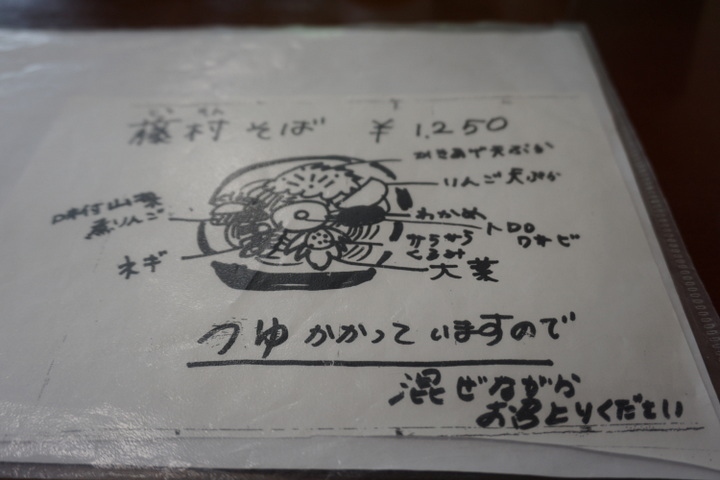 藤村そば ¥1,250
かきあげ天ぷら
りんご天ぷら
わかめ
トロロ
ワサビ
くるみ
大葉
味付山菜
煮りんご
ネギ
つゆかかっていますので
混ぜながら
お召上りください